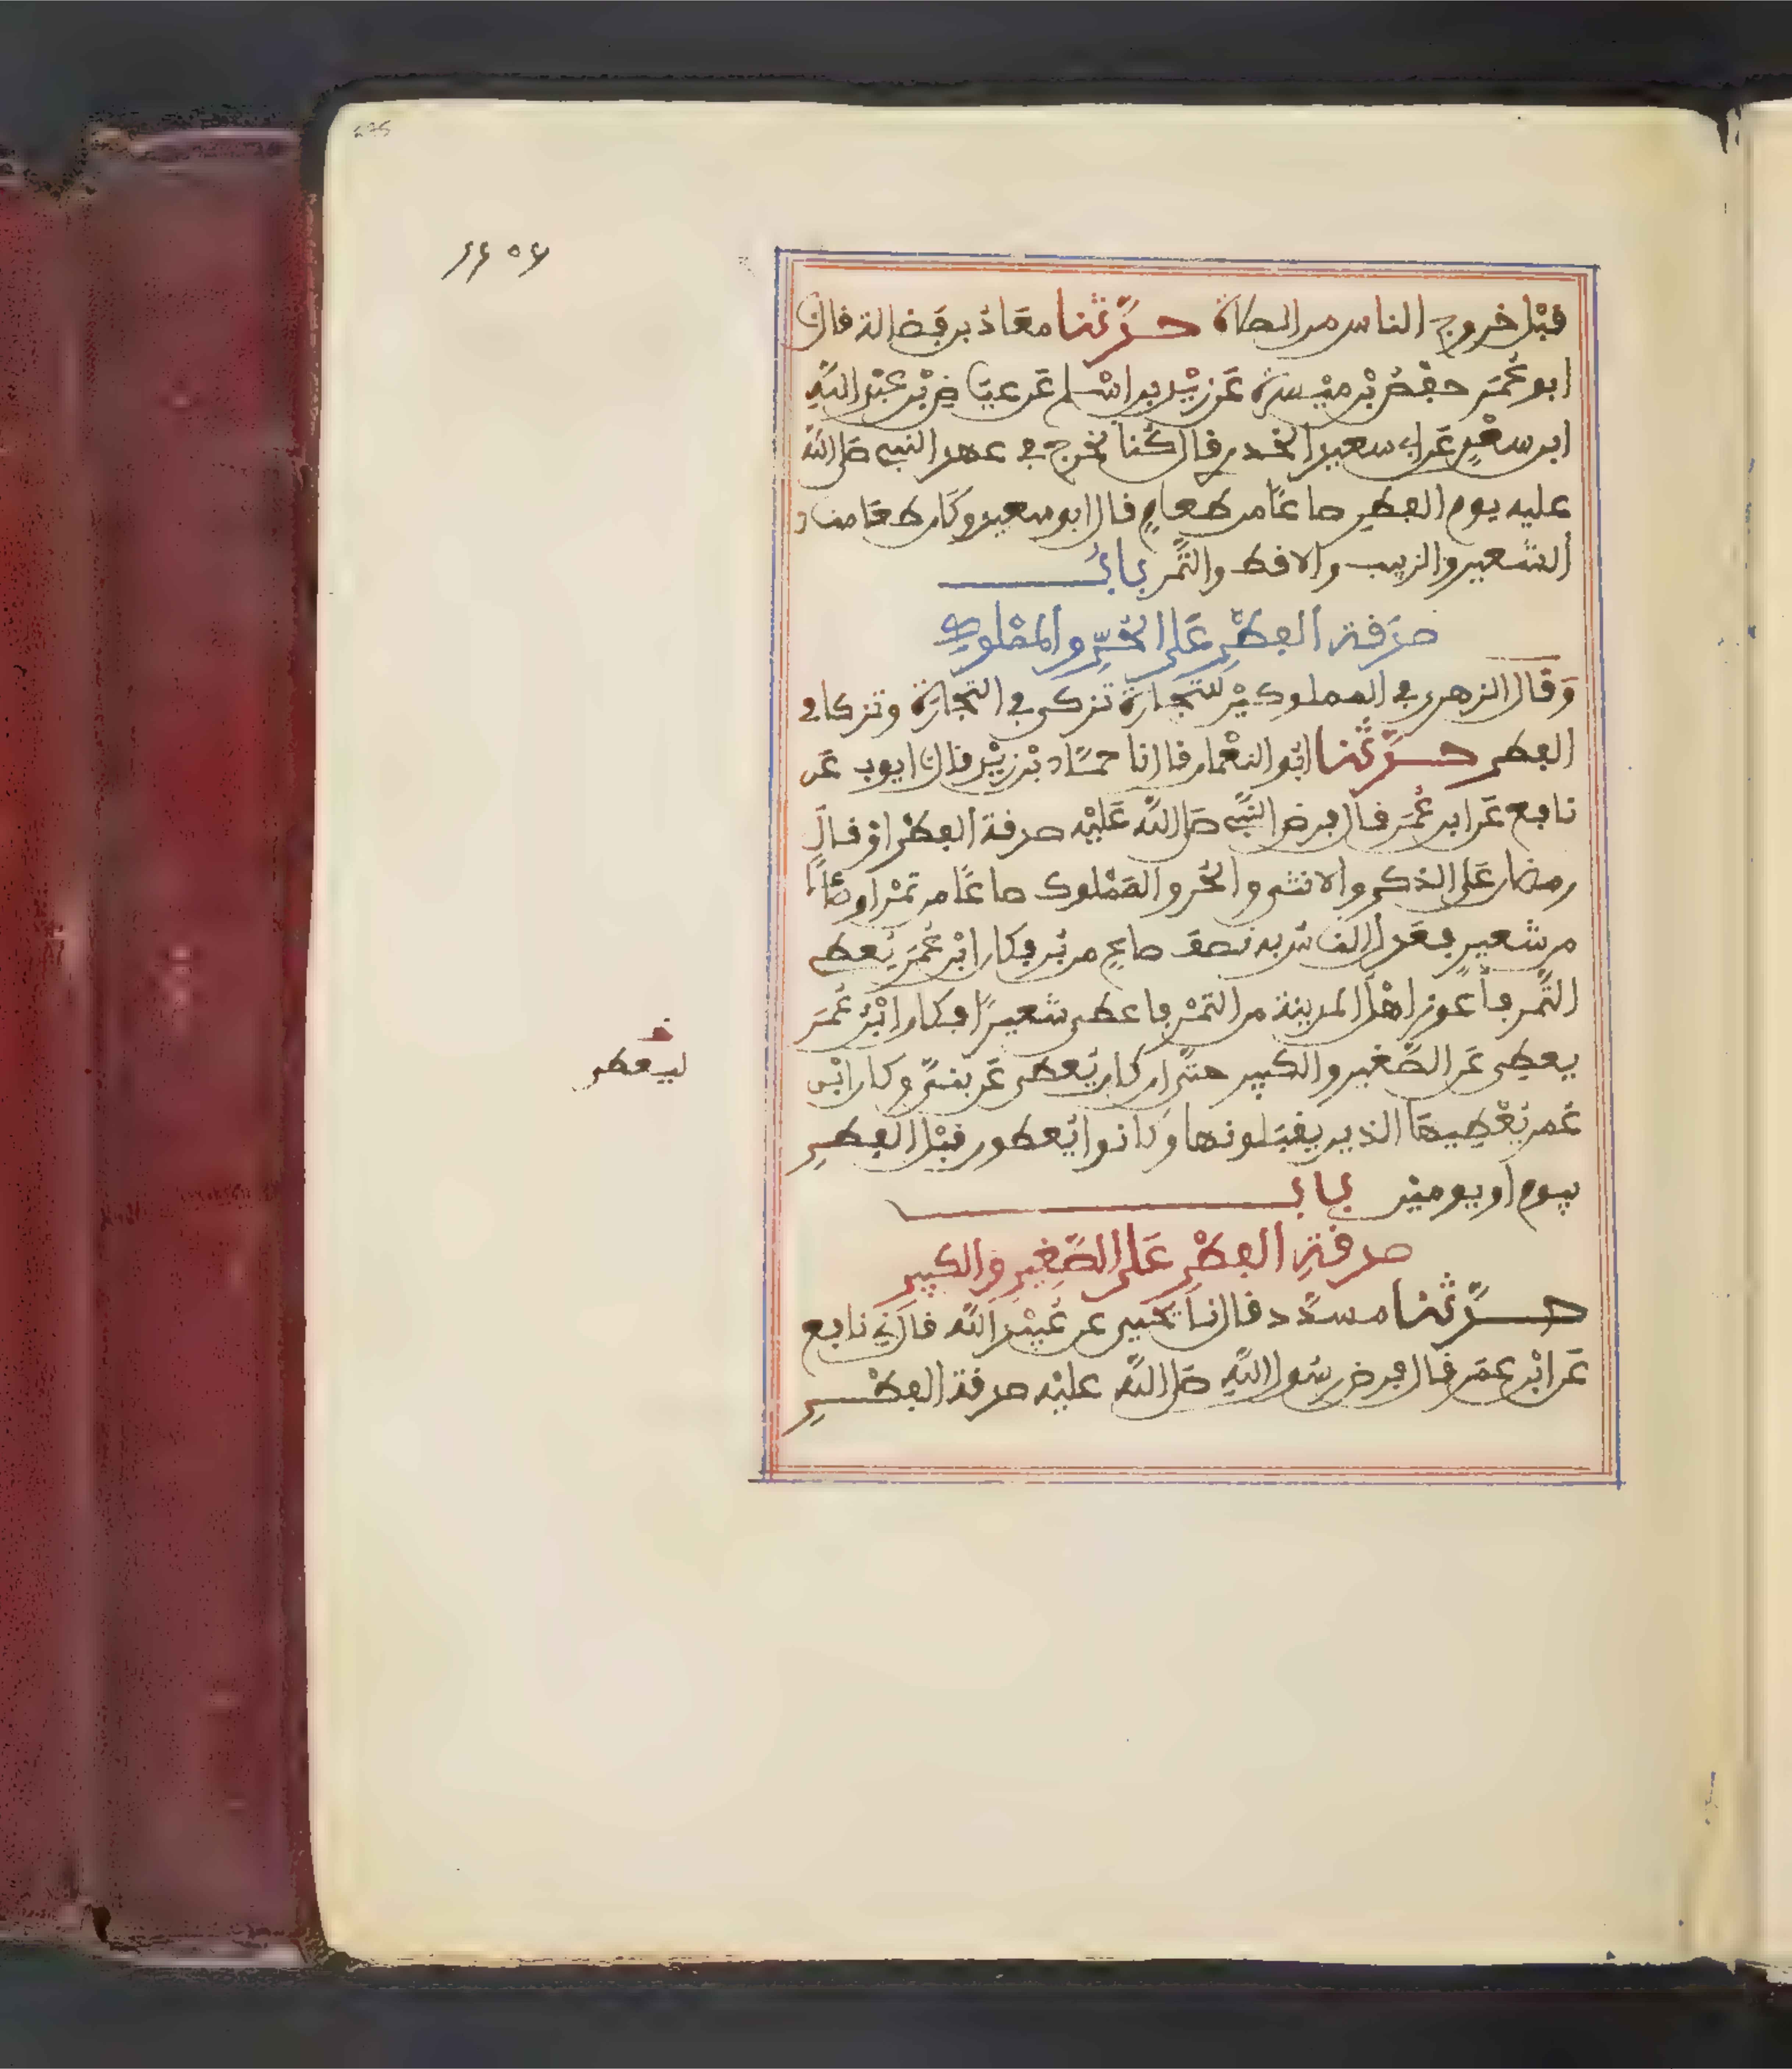 قبْل خروج الناس من الصلاة حدّثنا معَاذ بن فَضالة قال نا
ابو عُمَر حفْصُ بْن ميْسرة عَن زيْد بن اسْلم عَن عيَاضِ بْن عبْد اللهِ
ابن سعْدٍ عَن ابى سعيد الخدرى قال كُنا نخرج فى عهد النبى صلى الله
عليه يوم الفطرِ صاعًا من طعامٍ قال ابو سعيد وكَان طعَامنا
الشعير والزبيب والاقط والتّمر بابُ
صدَقة الفطْرِ عَلى الحُرِّ والممْلوك
وَقال الزهرى فى المملوكيْن للتجارة تزكى فى التجَارَة وتزكا فى
الفطر حدّثنا ابُو النعْمان قال نا حمّاد بْن زيْد قال نا ايوب عَن
نافع عَن ابن عُمَر قال فرض النبِّى صلى الله عَليْه صدقة الفطْر اوْ قال
رمضان عَلى الذكر والانثى والحُر والممْلوك صاعًا من تمْر او صَاعًا
من شعير فعَدل الناس به نصف صاعٍ من بُر فكان ابْن عُمَر يُعطى
التّمر فأعوز اهْل المدينة من التمْر فاعطى شعيرًا فكان ابْنُ عُمَر
يعطِى عَن الصّغير والكبير حتّى ان كان يُعطى عَن بنىَّ وكان ابْن
عُمر يُعْطِيهَا الذين يقبَلونها وَكانوا يُعطون قبْل الفطرِ
بيوم او يوميْن باب
صدقةِ الفِطْرِ عَلى الصَّغِيرِ والكبير
حدّثنا مسدّد قال نا يَحْيى عن عُبيْد الله قال نى نافع
عَن ابْن عمَر قال فرض رسُول اللهِ صلى الله عليْه صدقة الفطْرِ
خ
ليعطى